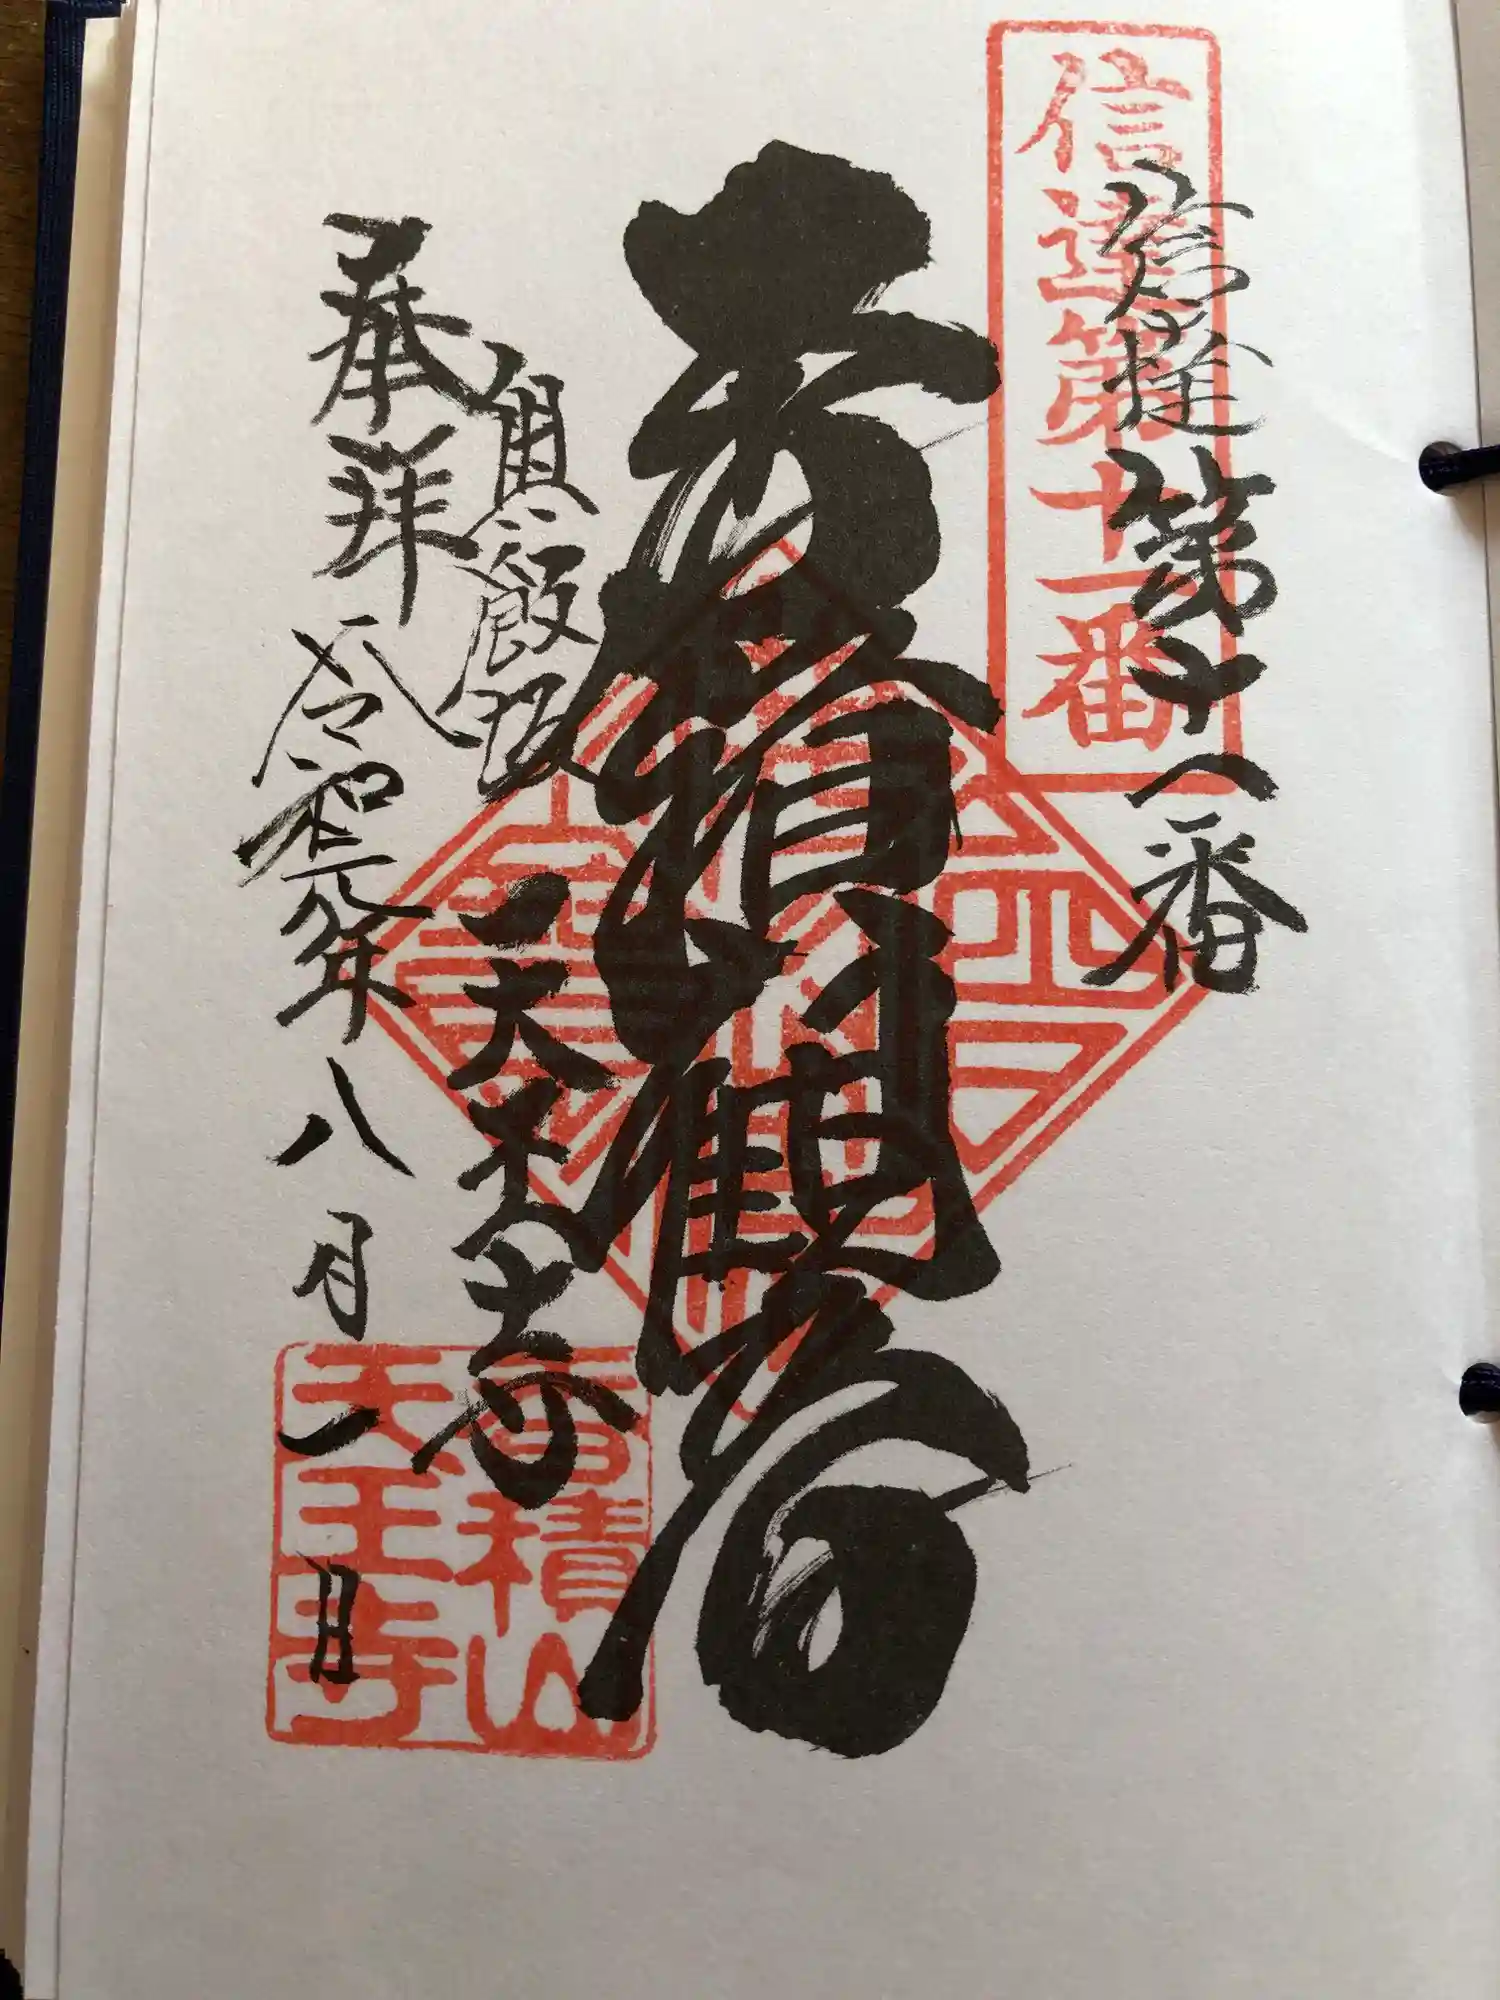 信達第十一番
信達第十一番
観音
奥飯坂
天王寺
奉拝
令和元年八月一日
香積山
天王寺